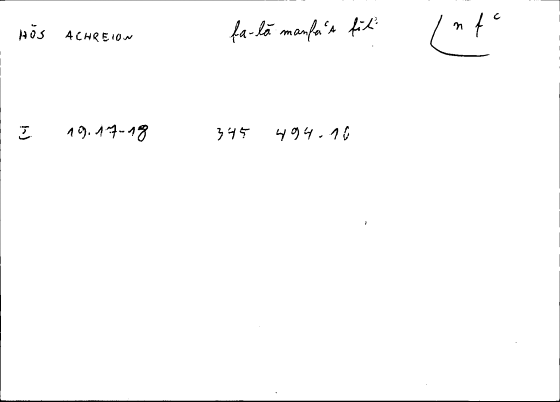 HŌS ACHREION fa-lā manfaʿa fīhi n f ʿ
I 19.17-18 345 494.16